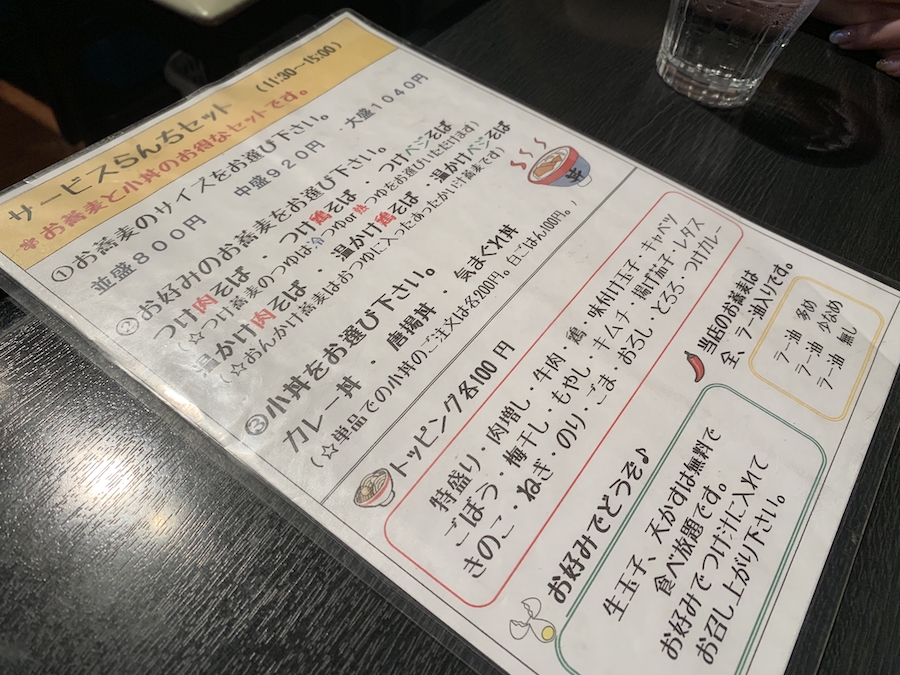 サービスらんちセット (11:30～15:00)
お蕎麦と小丼のお得なセットです。
①お蕎麦のサイズをお選び下さい。
並盛８００円 中盛９２０円 ・大盛１０４０円
②お好みのお蕎麦をお選び下さい。
つけ肉そば ・ つけ鶏そば ・ つけベジそば
(☆つけ蕎麦のつゆは冷つゆor熱つゆをお選びいただけます)
温かけ肉そば ・ 温かけ鶏そば ・ 温かけベジそば
(☆おんかけ蕎麦はおつゆに入ったあったかい汁蕎麦です)
③小丼をお選び下さい。
カレー丼 ・ 唐揚丼 ・ 気まぐれ丼
(☆単品での小丼のご注文は各200円。白ごはん100円。)
丼
トッピング各100円
特盛り・肉増し・牛肉・鶏・味付け玉子・キャベツ
ごぼう・梅干し・もやし・キムチ・揚げ茄子・レタス
きのこ・ねぎ・のり・ごま・おろし・とろろ・つけカレー
当店のお蕎麦は
全、ラー油入りです。
ラー油 多め
ラー油 少なめ
ラー油 無し
お好みでどうぞ♪
生玉子、天かすは無料で
食べ放題です。
お好みでつけ汁に入れて
お召し上がり下さい。